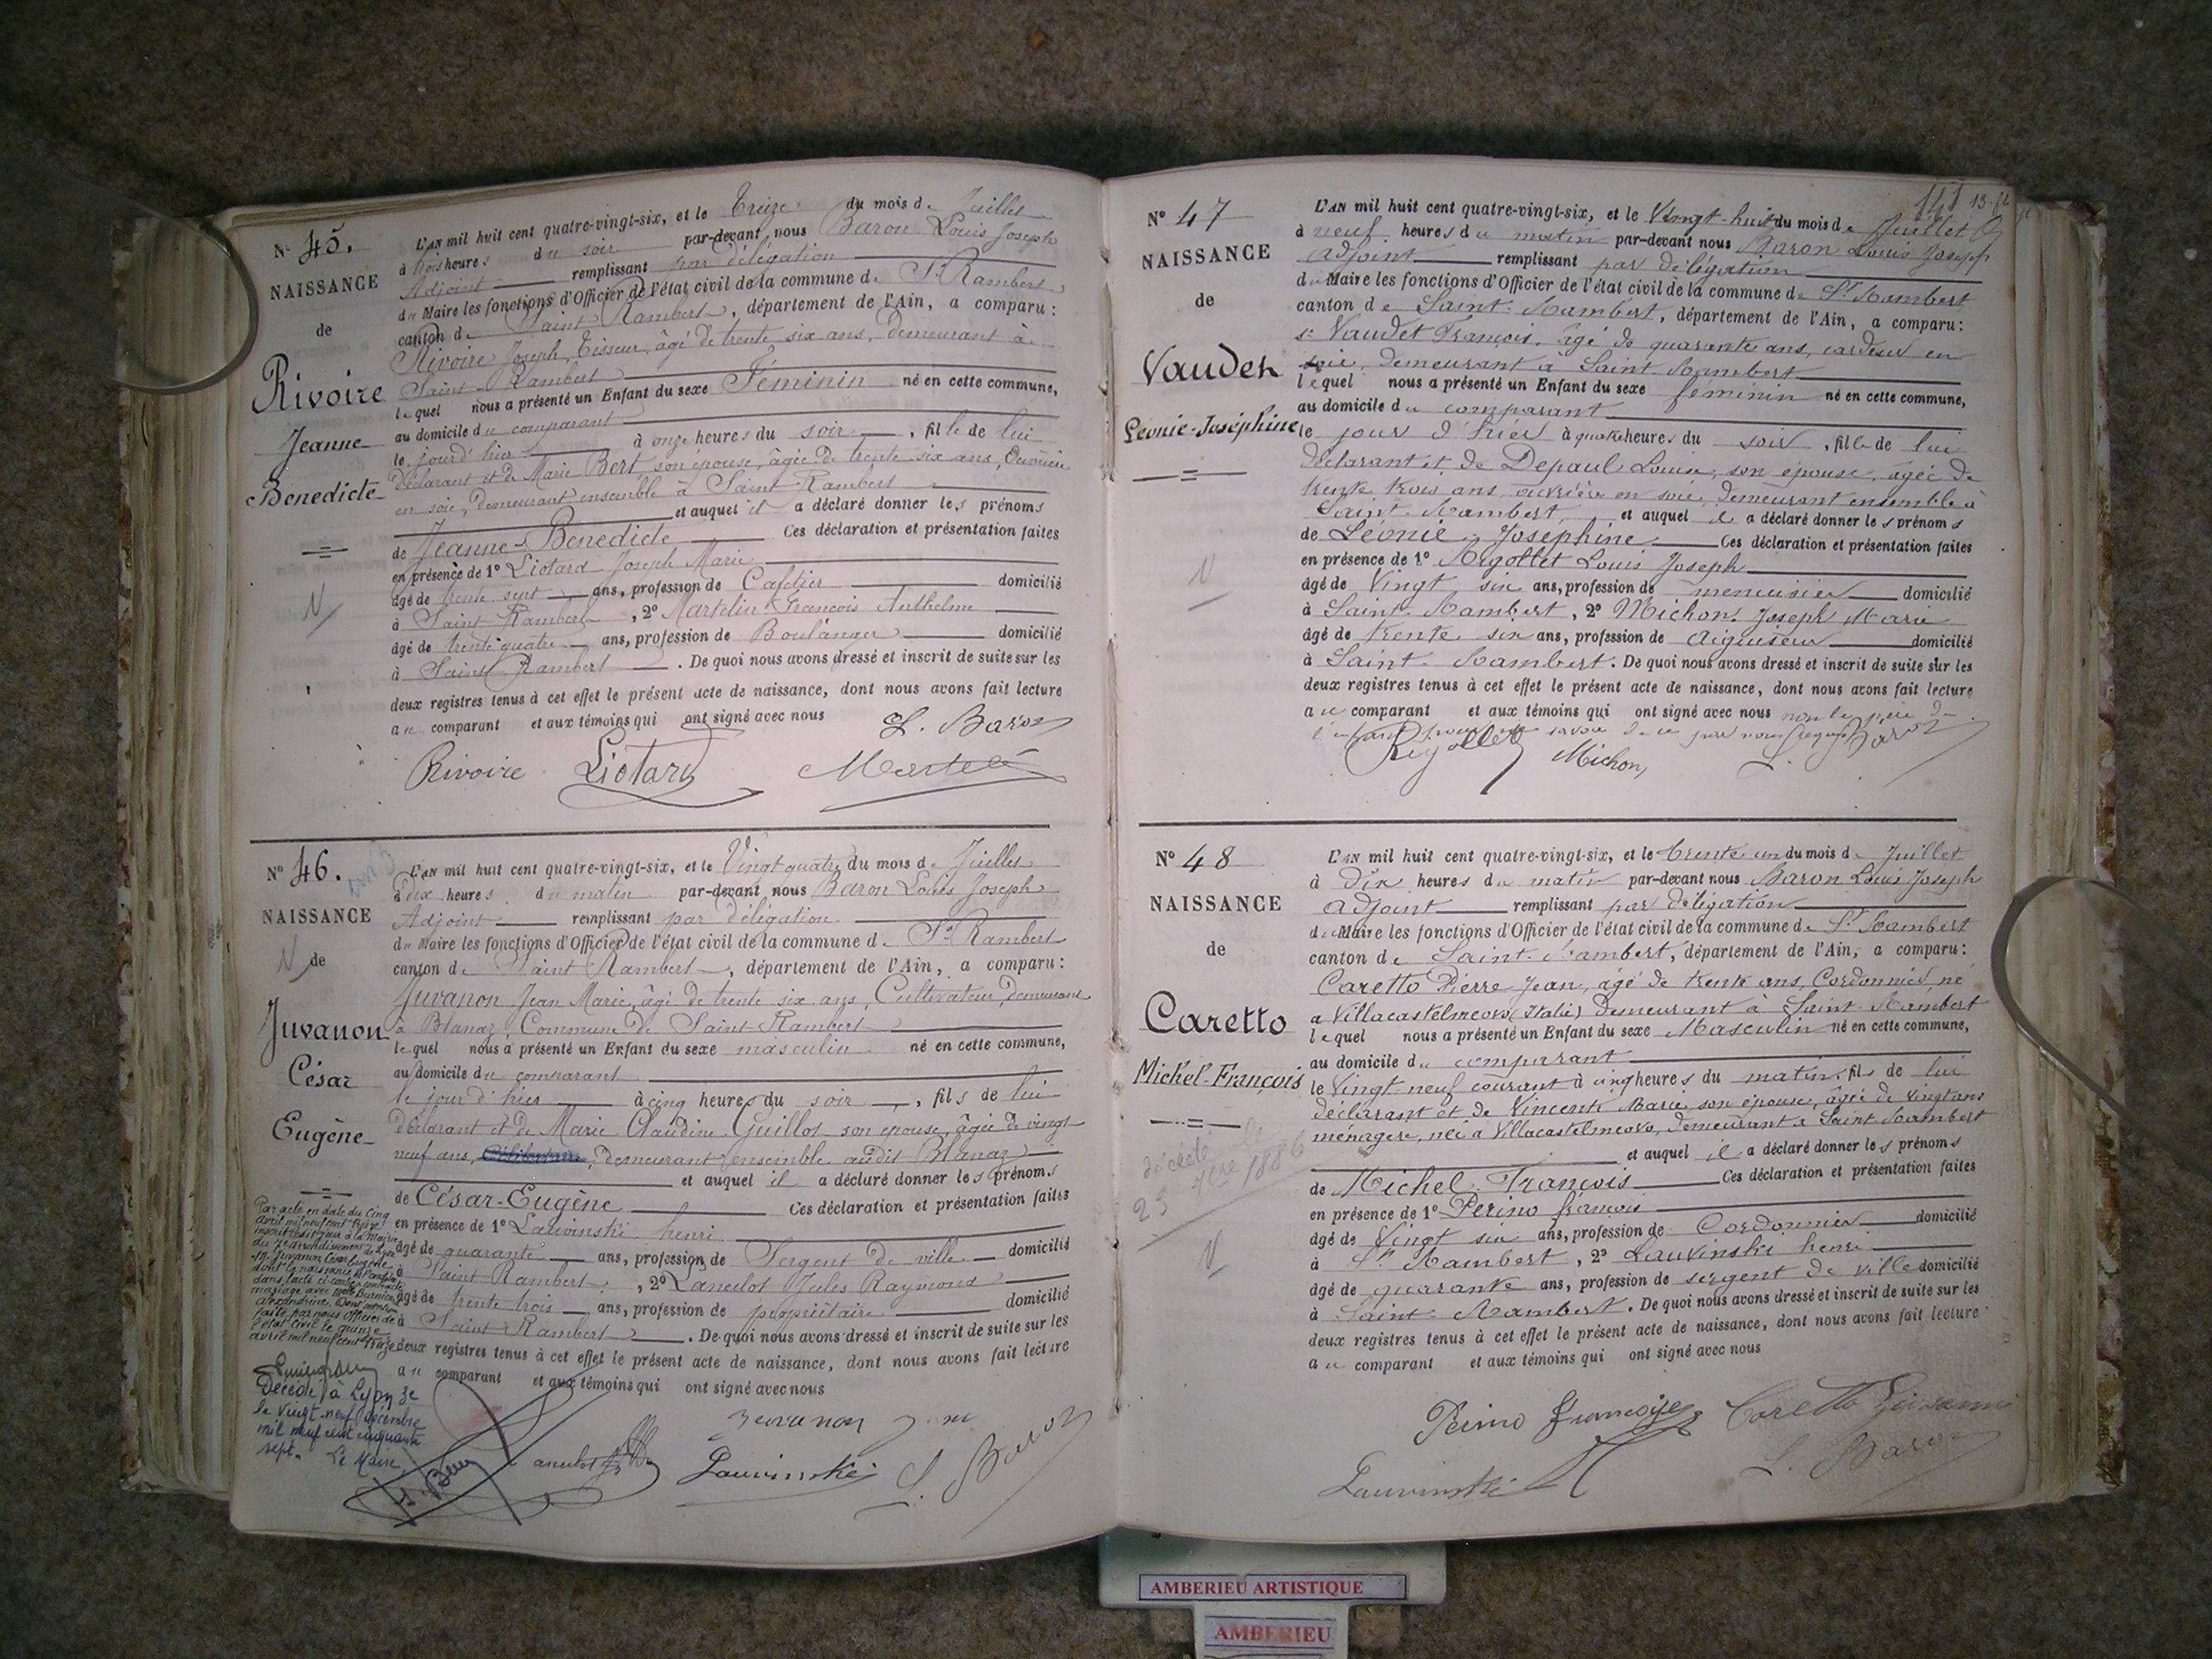 N° 45.
NAISSANCE
de
Rivoire
Jeanne
Bénédicte
N
L'AN mil huit cent quatre-vingt-six, et le Treize du mois de Juillet
à trois heures du soir par-devant nous Baron Louis Joseph
Adjoint remplissant par délégation
du Maire les fonctions d'Officier de l'état civil de la commune de St Rambert
canton de Saint Rambert, département de l'Ain, a comparu:
Rivoire Joseph, Tisseur, âgé de trente six ans, demeurant à
Saint Rambert
lequel nous a présenté un Enfant du sexe Féminin né en cette commune,
au domicile du comparant
le jour d'hier à onze heures du soir, fille de lui
déclarant et de Marie Bert son épouse, âgée de trente six ans, Ouvrière
en soie, demeurant ensemble à Saint Rambert
et auquel il a déclaré donner les prénoms
de Jeanne-Bénédicte Ces déclaration et présentation faites
en présence de 1° Liotard Joseph Marie
âgé de trente sept ans, profession de Cafetier domicilié
à Saint Rambert, 2° Martelin François Anthelme
âgé de trente quatre ans, profession de Boulanger domicilié
à Saint Rambert. De quoi nous avons dressé et inscrit de suite sur les
deux registres tenus à cet effet le présent acte de naissance, dont nous avons fait lecture
au comparant et aux témoins qui ont signé avec nous
L. Baron
Rivoire Liotard
N° 46.
NAISSANCE
N de
Juvanon
César
Eugène
L'AN mil huit cent quatre-vingt-six, et le Vingt quatre du mois de Juillet
à dix heures du matin par-devant nous Baron Louis Joseph
Adjoint remplissant par délégation
du Maire les fonctions d'Officier de l'état civil de la commune de St Rambert
canton de Saint Rambert, département de l'Ain, a comparu:
Juvanon Jean Marie, âgé de trente six ans, Cultivateur, demeurant
à Blanaz, Commune de Saint Rambert
lequel nous a présenté un Enfant du sexe masculin né en cette commune,
au domicile du comparant
le jour d'hier à cinq heures du soir, fils de lui
déclarant et de Marie Claudine Guillot son épouse, âgée de vingt
neuf ans, demeurant ensemble audit Blanaz
et auquel il a déclaré donner les prénoms
de César-Eugène Ces déclaration et présentation faites
en présence de 1° Lauvinski henri
âgé de quarante ans, profession de Sergent de ville domicilié
à Saint Rambert, 2° Lancelot Jules Raymond
âgé de trente trois ans, profession de propriétaire domicilié
à Saint Rambert. De quoi nous avons dressé et inscrit de suite sur les
deux registres tenus à cet effet le présent acte de naissance, dont nous avons fait lecture
au comparant et aux témoins qui ont signé avec nous
Par acte en date du Cinq
avril mil neuf cent treize
inscrit à la Mairie
du 7e arrondissement de Lyon
M. Juvanon César Eugène
dont la naissance est constatée
dans l'acte ci-contre a contracté
mariage avec Melle
Alexandrine. Dont mention
faite par nous Officier de
l'état civil le quinze
avril mil neuf cent treize
Décédé à Lyon 3e
le vingt-neuf décembre
mil neuf cent cinquante
sept. Le Maire,
Juvanon
Lauvinski L. Baron
N° 47
NAISSANCE
de
Vaudet
Léonie-Joséphine
N
L'AN mil huit cent quatre-vingt-six, et le Vingt-huit du mois de Juillet
à neuf heures du matin par-devant nous Baron Louis Joseph
adjoint remplissant par délégation
du Maire les fonctions d'Officier de l'état civil de la commune de St Rambert
canton de Saint-Rambert, département de l'Ain, a comparu:
sr Vaudet François, âgé de quarante ans, cardeur en
soie, demeurant à Saint Rambert
lequel nous a présenté un Enfant du sexe féminin né en cette commune,
au domicile du comparant
le jour d'hier à quatre heures du soir, fille de lui
déclarant et de Depaul Louise, son épouse, âgée de
trente trois ans, ouvrière en soie, demeurant ensemble à
Saint-Rambert, et auquel il a déclaré donner les prénoms
de Léonie Joséphine Ces déclaration et présentation faites
en présence de 1° Rigollet Louis Joseph
âgé de Vingt six ans, profession de menuisier domicilié
à Saint-Rambert, 2° Michon Joseph Marie
âgé de trente six ans, profession de Aiguiseur domicilié
à Saint-Rambert. De quoi nous avons dressé et inscrit de suite sur les
deux registres tenus à cet effet le présent acte de naissance, dont nous avons fait lecture
au comparant et aux témoins qui ont signé avec nous non le père de
l'enfant pour ne savoir de ce par nous requis
Rigollet Michon, L. Baron
N° 48
NAISSANCE
de
Caretto
Michel-François
décédé le
23 7bre 1886
N
L'AN mil huit cent quatre-vingt-six, et le trente un du mois de Juillet
à Dix heures du matin par-devant nous Baron Louis Joseph
adjoint remplissant par délégation
du Maire les fonctions d'Officier de l'état civil de la commune de St Rambert
canton de Saint-Rambert, département de l'Ain, a comparu:
Caretto Pierre Jean, âgé de trente ans, Cordonnier, né
a Villacastelneovo (Italie) demeurant à Saint-Rambert
lequel nous a présenté un Enfant du sexe Masculin né en cette commune,
au domicile du comparant
le Vingt-neuf courant à cinq heures du matin, fils de lui
déclarant et de Vincente Marie son épouse, âgée de vingt ans
ménagère, née à Villacastelneovo, demeurant à Saint Rambert
et auquel il a déclaré donner les prénoms
de Michel François Ces déclaration et présentation faites
en présence de 1° Perino françois
âgé de Vingt six ans, profession de Cordonnier domicilié
à St Rambert, 2° Lauvinski henri
âgé de quarante ans, profession de sergent de ville domicilié
à Saint Rambert. De quoi nous avons dressé et inscrit de suite sur les
deux registres tenus à cet effet le présent acte de naissance, dont nous avons fait lecture
au comparant et aux témoins qui ont signé avec nous
Perino Caretto
Lauvinski L. Baron
AMBERIEU ARTISTIQUE
AMBERIEU